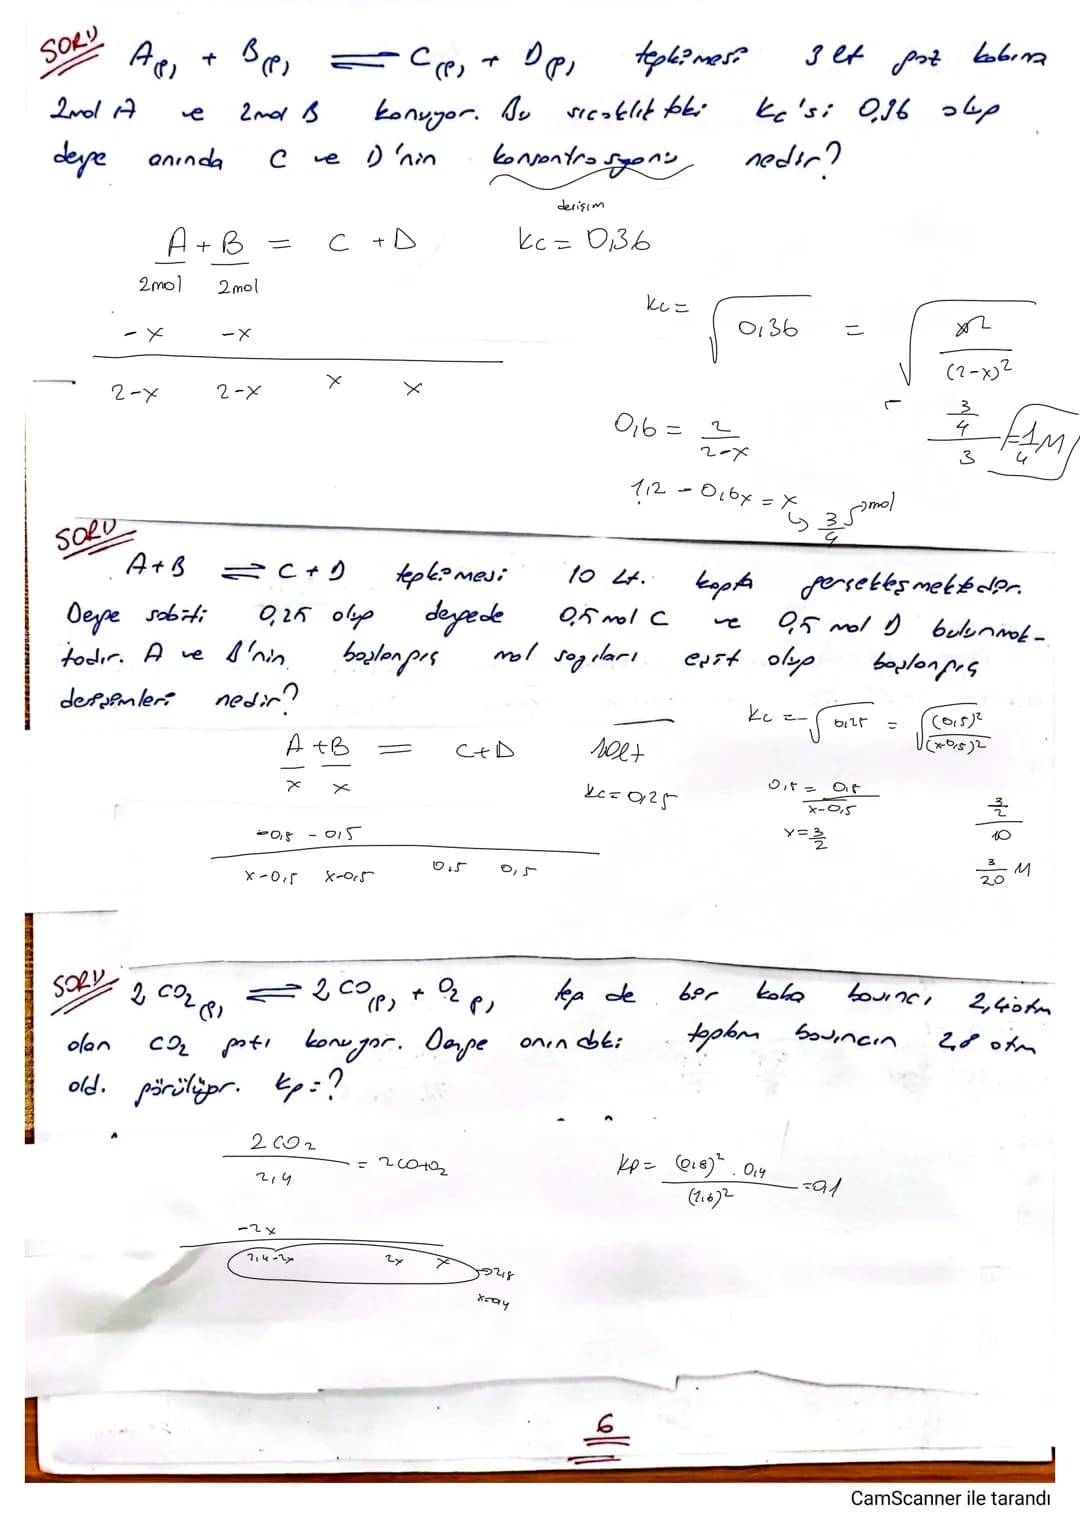 SORU A(g) + B(g) ⇌ C(g) + D(g) tepkimesi 3 lt gaz kabına
2mol A ve 2mol B konuyor. Bu sıcaklıktaki Kc'si 0,36 olup
denge anında C ve D'nin konsantrasyonu nedir?
derişim
A + B = C + D Kc = 0,36
2mol 2mol
-x -x
2-x 2-x x x
Kc = √0,36 = √x2/(2-x)2
0,6 = 2/2-x
1,2 - 0,6x = x
3/4 mol
3/4 / 3 = 1/4 M
SORU
A+B ⇌ C+D tepkimesi 10 Lt. kapta gerçekleşmektedir.
Denge sabiti 0,25 olup dengede 0,5 mol C ve 0,5 mol D bulunmak-
tadır. A ve B'nin başlangıç mol sayıları eşit olup başlangıç
derişimleri nedir?
A + B = C+D 10lt
x x Kc = 0,25
-0,5 - 0,5
x-0,5 x-0,5 0,5 0,5
Kc = √0,25 = √(0,5)2/(x-0,5)2
0,5 = 0,5/x-0,5
x = 3/2
3/2 / 10
3/20 M
SORU 2 CO2(g) ⇌ 2 CO(g) + O2(g) tep de bir kaba basıncı 2,4 atm
olan CO2 gazı konuyor. Denge anındaki toplam basıncın 2,8 atm
old. görülüyor. Kp = ?
2CO2 = 2CO+O2
2,4
-2x
2,4-2x 2x x → 2,8
x=0,4
Kp = (0,8)2 . 0,4/(1,6)2 = 0,1
6
CamScanner ile tarandı